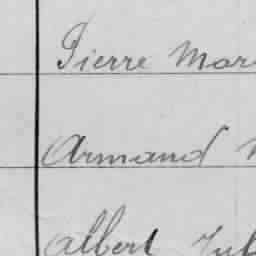 Pierre Mar
Armand
Albert Jul